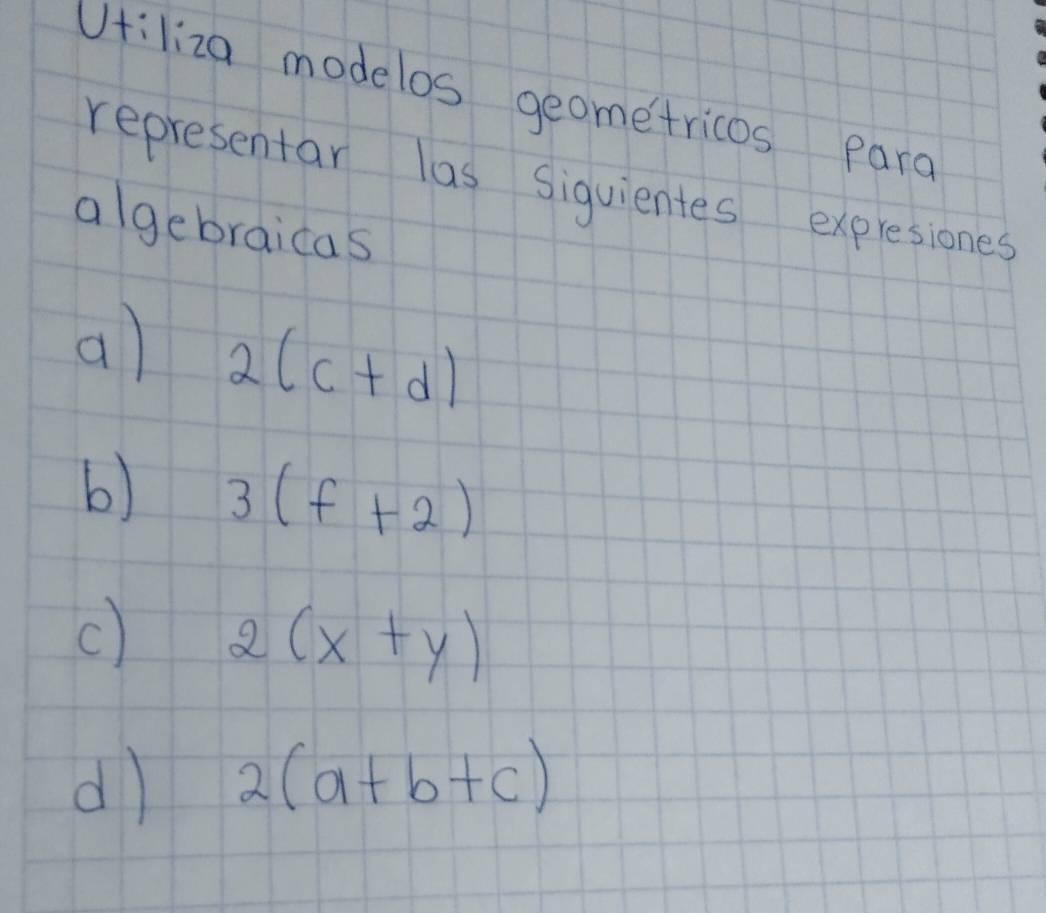 Utiliza modelos geométricos para
representar las siguientes expresiones
algebraicas
a) 2(c+d)
b) 3(f+2)
c) 2(x+y)
d) 2(a+b+c)